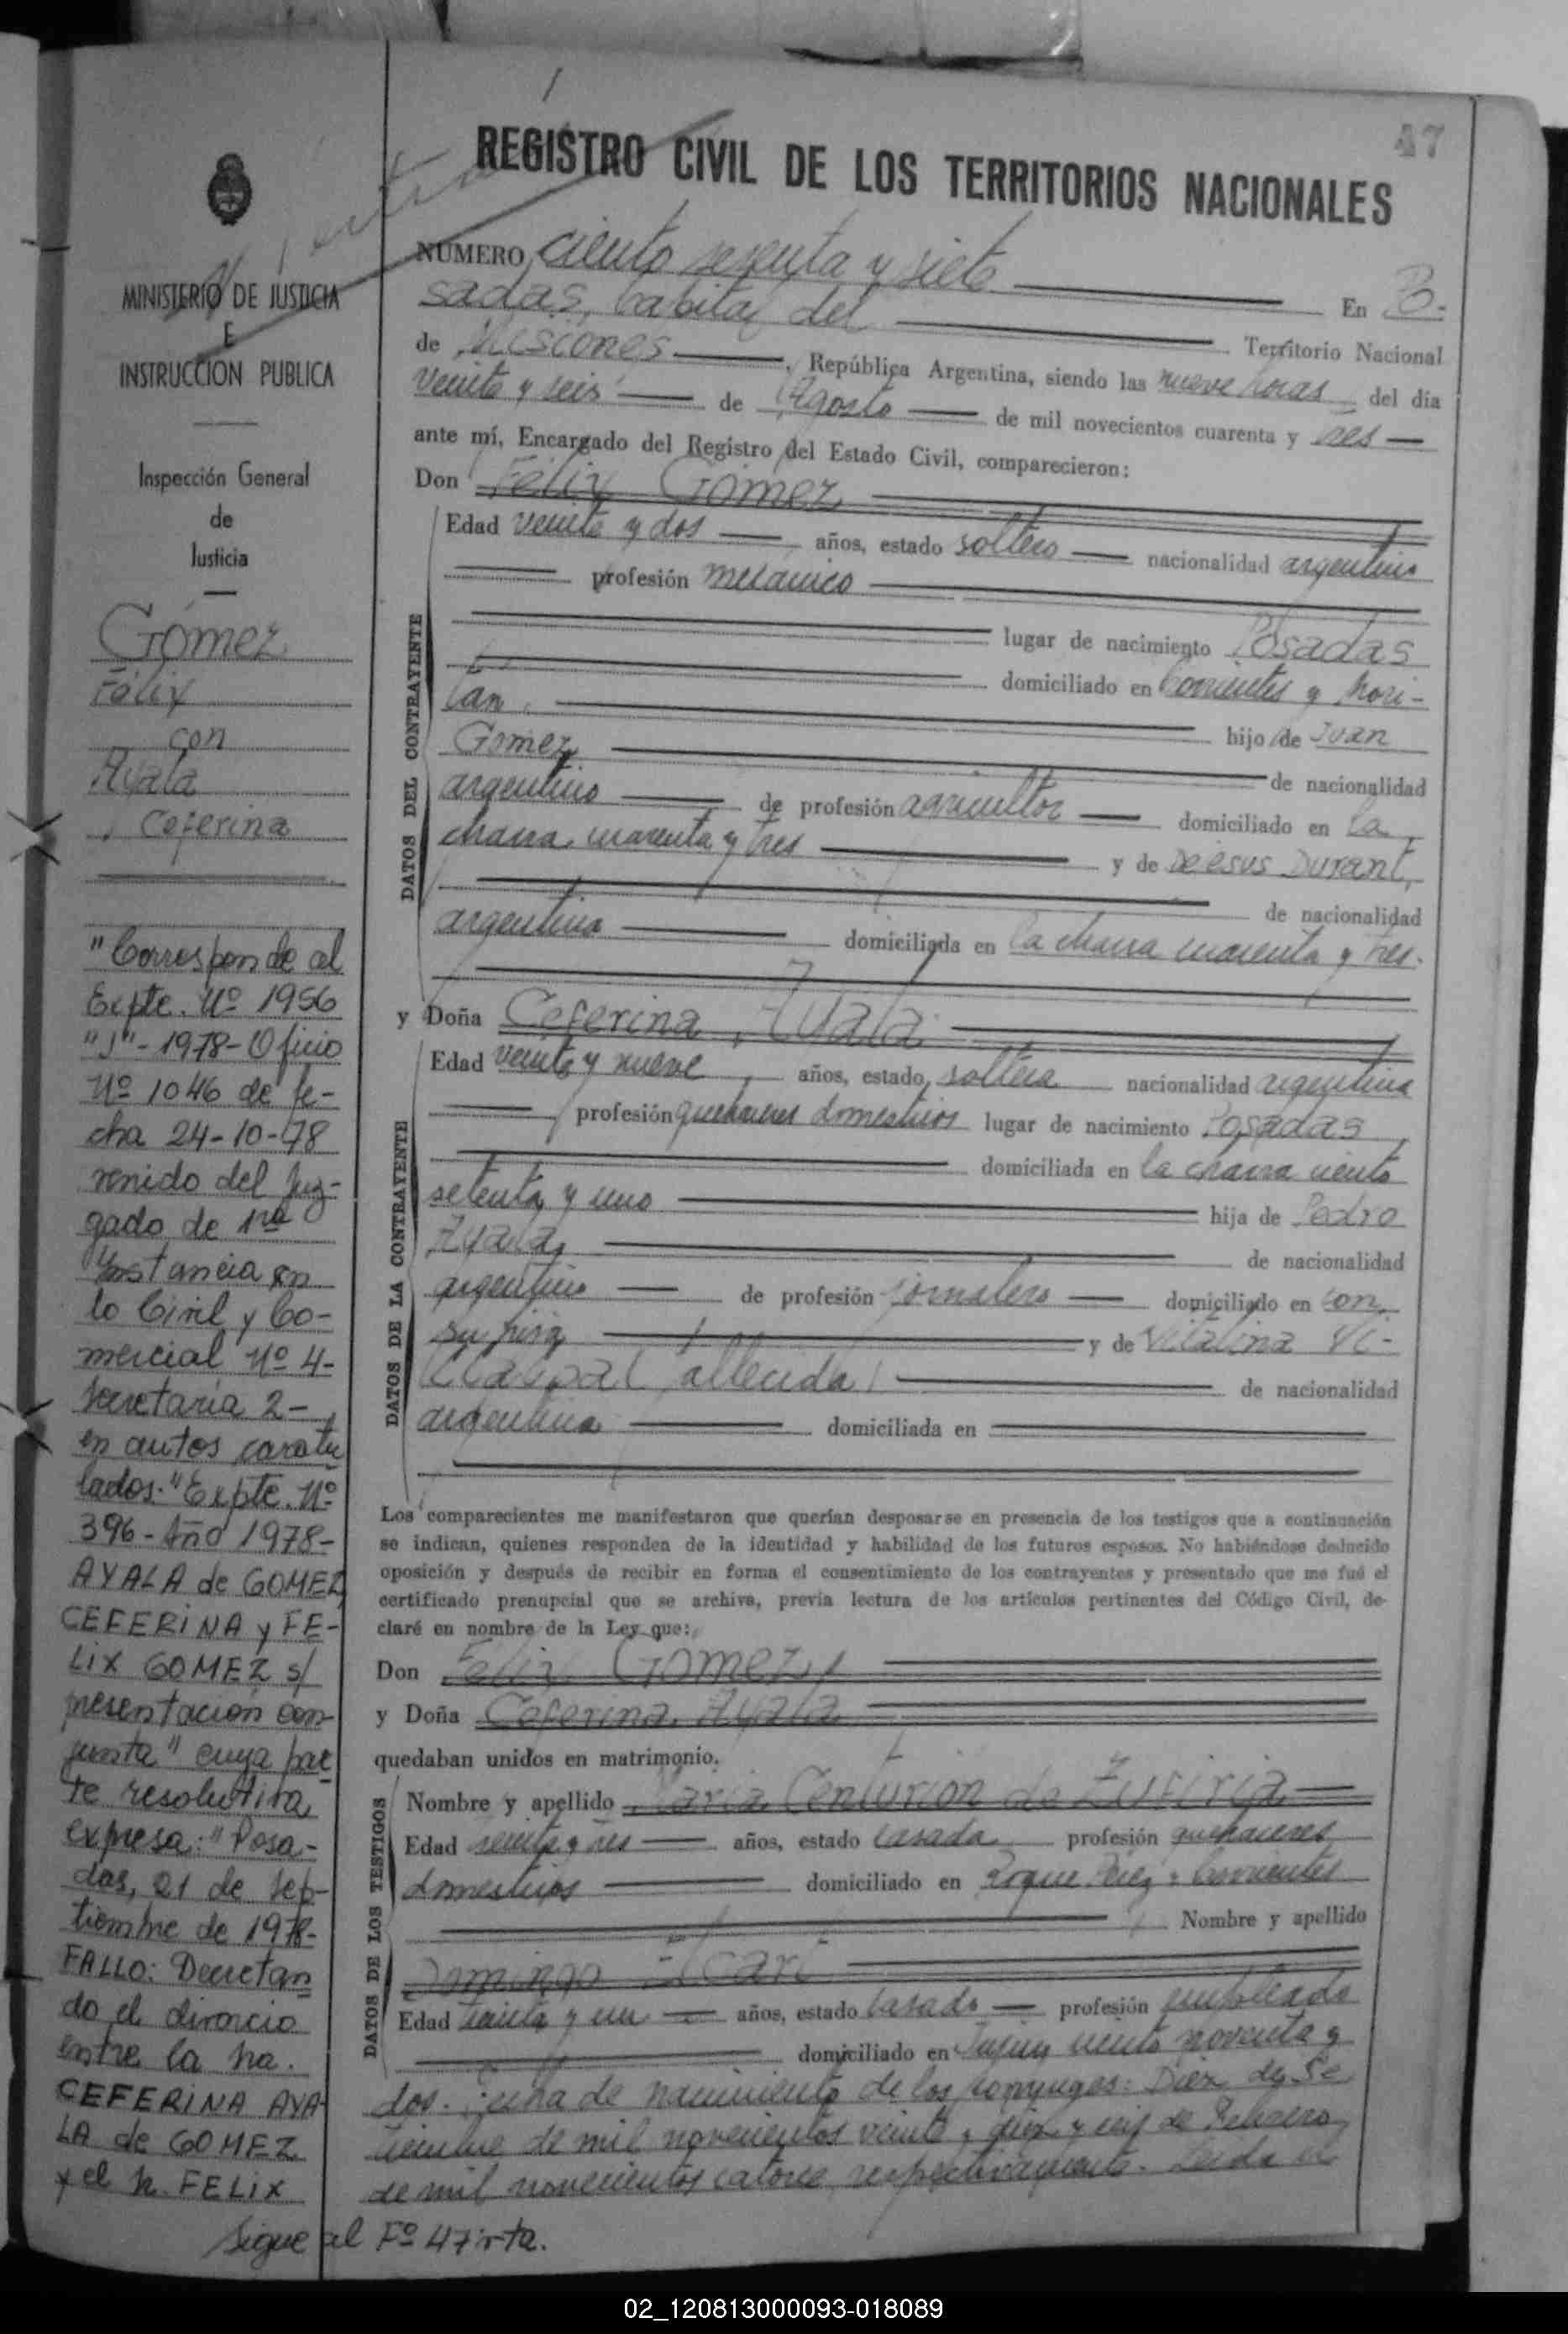 47
REGISTRO CIVIL DE LOS TERRITORIOS NACIONALES
MINISTERIO DE JUSTICIA
E
INSTRUCCION PUBLICA
Inspección General
de
Justicia
Gómez
Félix
con
Ayala
Ceferina
"Corresponde al
Expte. Nº 1956
"J"-1978-Oficio
Nº 1046 de fe-
cha 24-10-78
venido del Juz-
gado de 1ra
Instancia en
lo Civil y Co-
mercial Nº 4-
Secretaría 2-
en autos caratu
lados: "Expte. Nº
396-Año 1978-
AYALA de GOMEZ
CEFERINA y FE-
LIX GOMEZ s/
presentación con-
junta" cuya par
te resolutiva
expresa: "Posa-
das, 21 de Sep-
tiembre de 1978-
FALLO: Decretan
do el divorcio
entre la Sra.
CEFERINA AYA-
LA de GOMEZ
y el Sr. FELIX
Sigue al Fº 47 vta.
NUMERO ciento sesenta y siete En Po-
sadas, Capital del Territorio Nacional
de Misiones, República Argentina, siendo las nueve horas del día
veinte y seis de Agosto de mil novecientos cuarenta y tres
ante mí, Encargado del Registro del Estado Civil, comparecieron:
Don Félix Gómez
DATOS DEL CONTRAYENTE
Edad veinte y dos años, estado soltero nacionalidad argentino
profesión mecánico
lugar de nacimiento Posadas
domiciliado en Corrientes y
hijo de Juan
Gómez de nacionalidad
argentino de profesión agricultor domiciliado en la
chacra cuarenta y tres y de Deesus Durant,
de nacionalidad
argentina domiciliada en la chacra cuarenta y tres.
y Doña Ceferina Ayala
DATOS DE LA CONTRAYENTE
Edad veinte y nueve años, estado soltera nacionalidad argentina
profesión quehaceres domesticos lugar de nacimiento Posadas
domiciliada en la chacra ciento
setenta y uno hija de Pedro
Ayala, de nacionalidad
argentino de profesión jornalero domiciliado en con
su hija y de Vitalina Vi-
llalba (fallecida) de nacionalidad
argentina domiciliada en
Los comparecientes me manifestaron que querían desposarse en presencia de los testigos que a continuación
se indican, quienes responden de la identidad y habilidad de los futuros esposos. No habiéndose deducido
oposición y después de recibir en forma el consentimiento de los contrayentes y presentado que me fué el
certificado prenupcial que se archiva, previa lectura de los artículos pertinentes del Código Civil, de-
claré en nombre de la Ley que:
Don Félix Gómez
y Doña Ceferina Ayala
quedaban unidos en matrimonio.
DATOS DE LOS TESTIGOS
Nombre y apellido María Centurión de
Edad treinta y tres años, estado casada profesión quehaceres
domesticos domiciliado en Roque Pérez y Corrientes
Nombre y apellido
Domingo
Edad treinta y un años, estado casado profesión empleado
domiciliado en Jujuy ciento noventa y
dos. Fecha de nacimiento de los conyuges: Diez de Se
tiembre de mil novecientos veinte y diez y seis de Febrero
de mil novecientos catorce respectivamente. Leida el
02_120813000093-018089